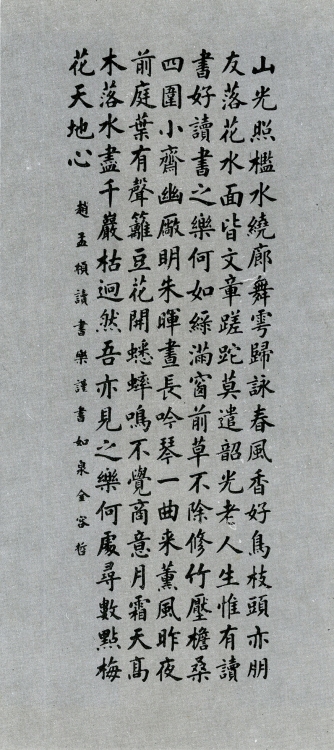 山光照檻水繞廊舞雩歸詠春風香好鳥枝頭亦朋
友落花水面皆文章蹉跎莫遣韶光老人生惟有讀
書好讀書之樂何如綠滿窗前草不除修竹壓檐桑
四圍小齋幽敞明朱暉晝長吟琴一曲来薰風昨夜
前庭葉有聲籬豆花開蟋蟀鳴不覺商意月霜天高
木落水盡千巖枯迥然吾亦見之樂何處尋數點梅
花天地心
趙孟頫讀書樂謹書如泉金容哲